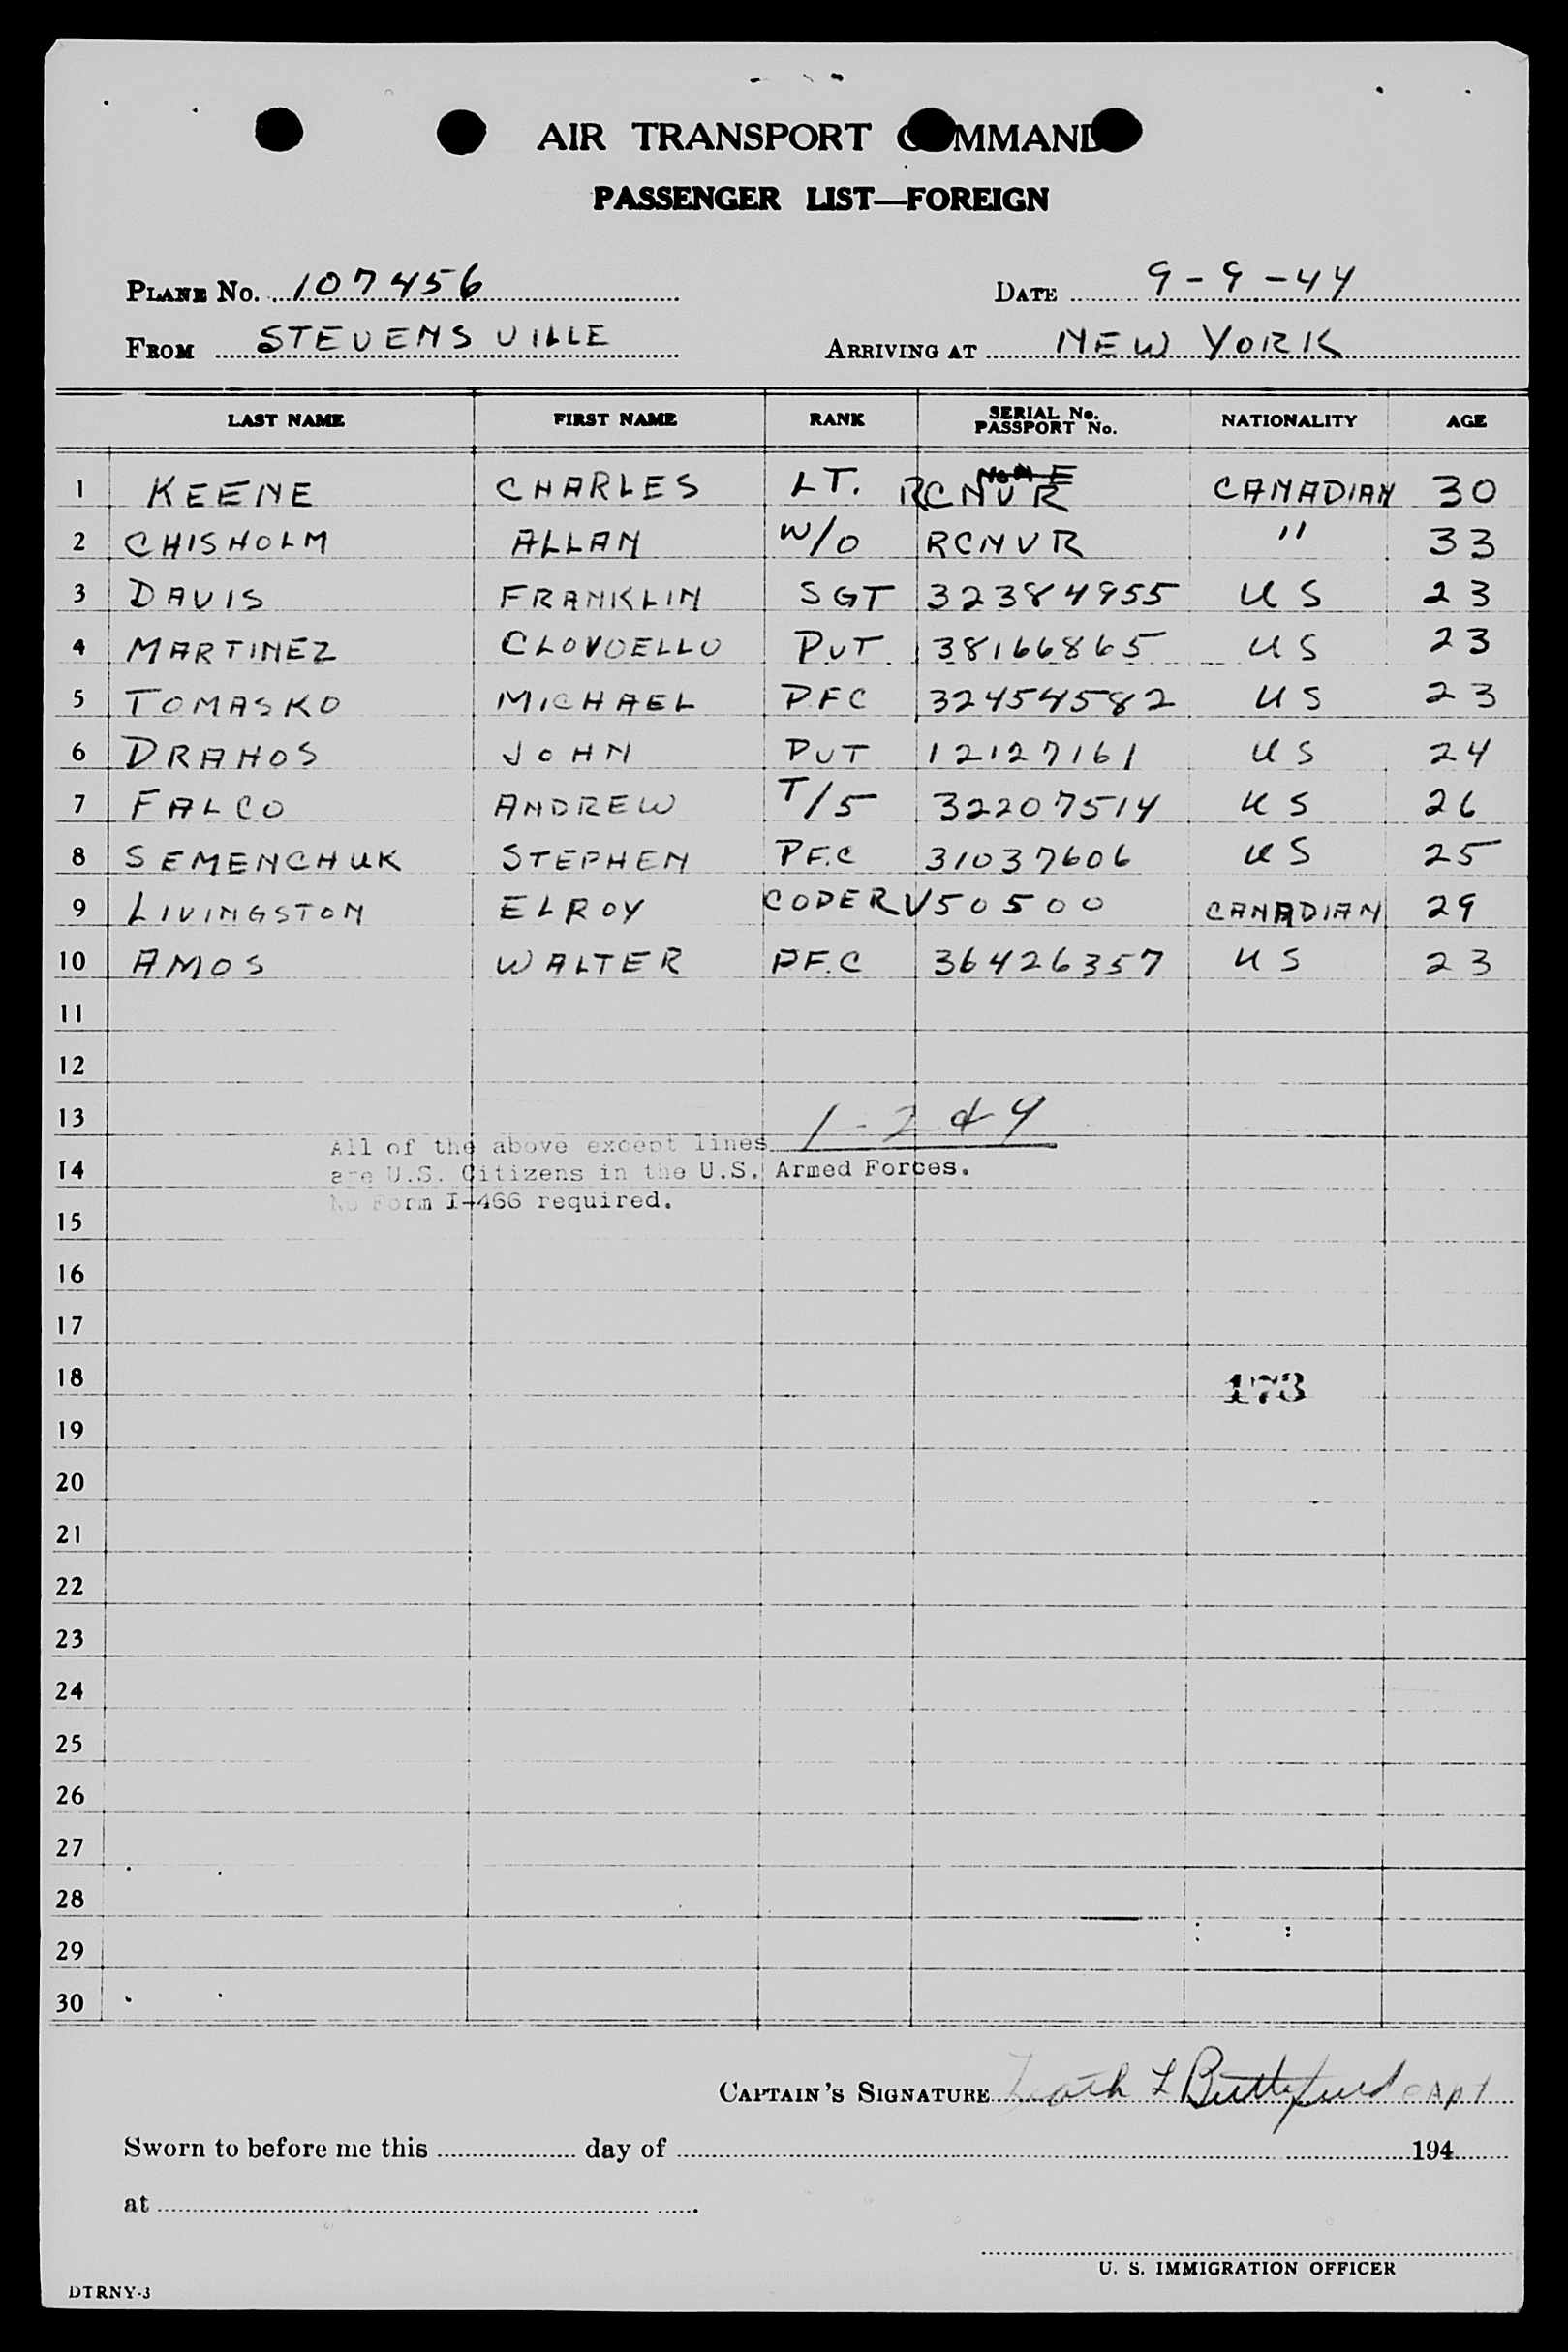 AIR TRANSPORT COMMAND
PASSENGER LIST—FOREIGN
PLANE No. 107456 DATE 9-9-44
FROM STEVENSVILLE ARRIVING AT NEW YORK
LAST NAME FIRST NAME RANK SERIAL No. PASSPORT No. NATIONALITY AGE
1 KEENE CHARLES LT. RCNVR CANADIAN 30
2 CHISHOLM ALLAN W/O RCNVR " 33
3 DAVIS FRANKLIN SGT 32384955 US 23
4 MARTINEZ CLOVOELLO PVT 38166865 US 23
5 TOMASKO MICHAEL PFC 32454582 US 23
6 DRAHOS JOHN PVT 12127161 US 24
7 FALCO ANDREW T/5 32207514 US 26
8 SEMENCHUK STEPHEN PFC 31037606 US 25
9 LIVINGSTON ELROY CODER V50500 CANADIAN 29
10 AMOS WALTER PFC 36426357 US 23
11
12
13
All of the above except lines 1-2 & 9
14 are U.S. Citizens in the U.S. Armed Forces.
No Form I-466 required.
15
16
17
18 173
19
20
21
22
23
24
25
26
27
28
29
30
CAPTAIN'S SIGNATURE L Capt
Sworn to before me this day of 194
at
U. S. IMMIGRATION OFFICER
DTRNY-3